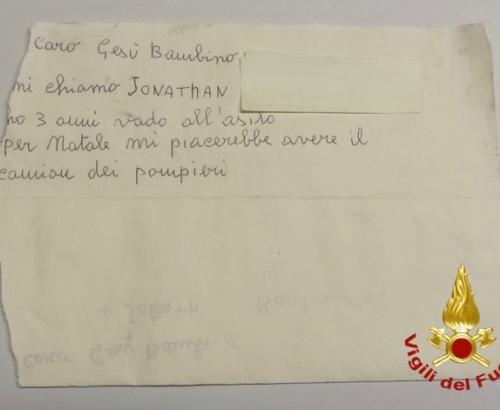 Caro Gesù Bambino
mi chiamo JONATHAN
ho 3 anni vado all'asilo
per Natale mi piacerebbe avere il
camion dei pompieri
Vigili del Fu